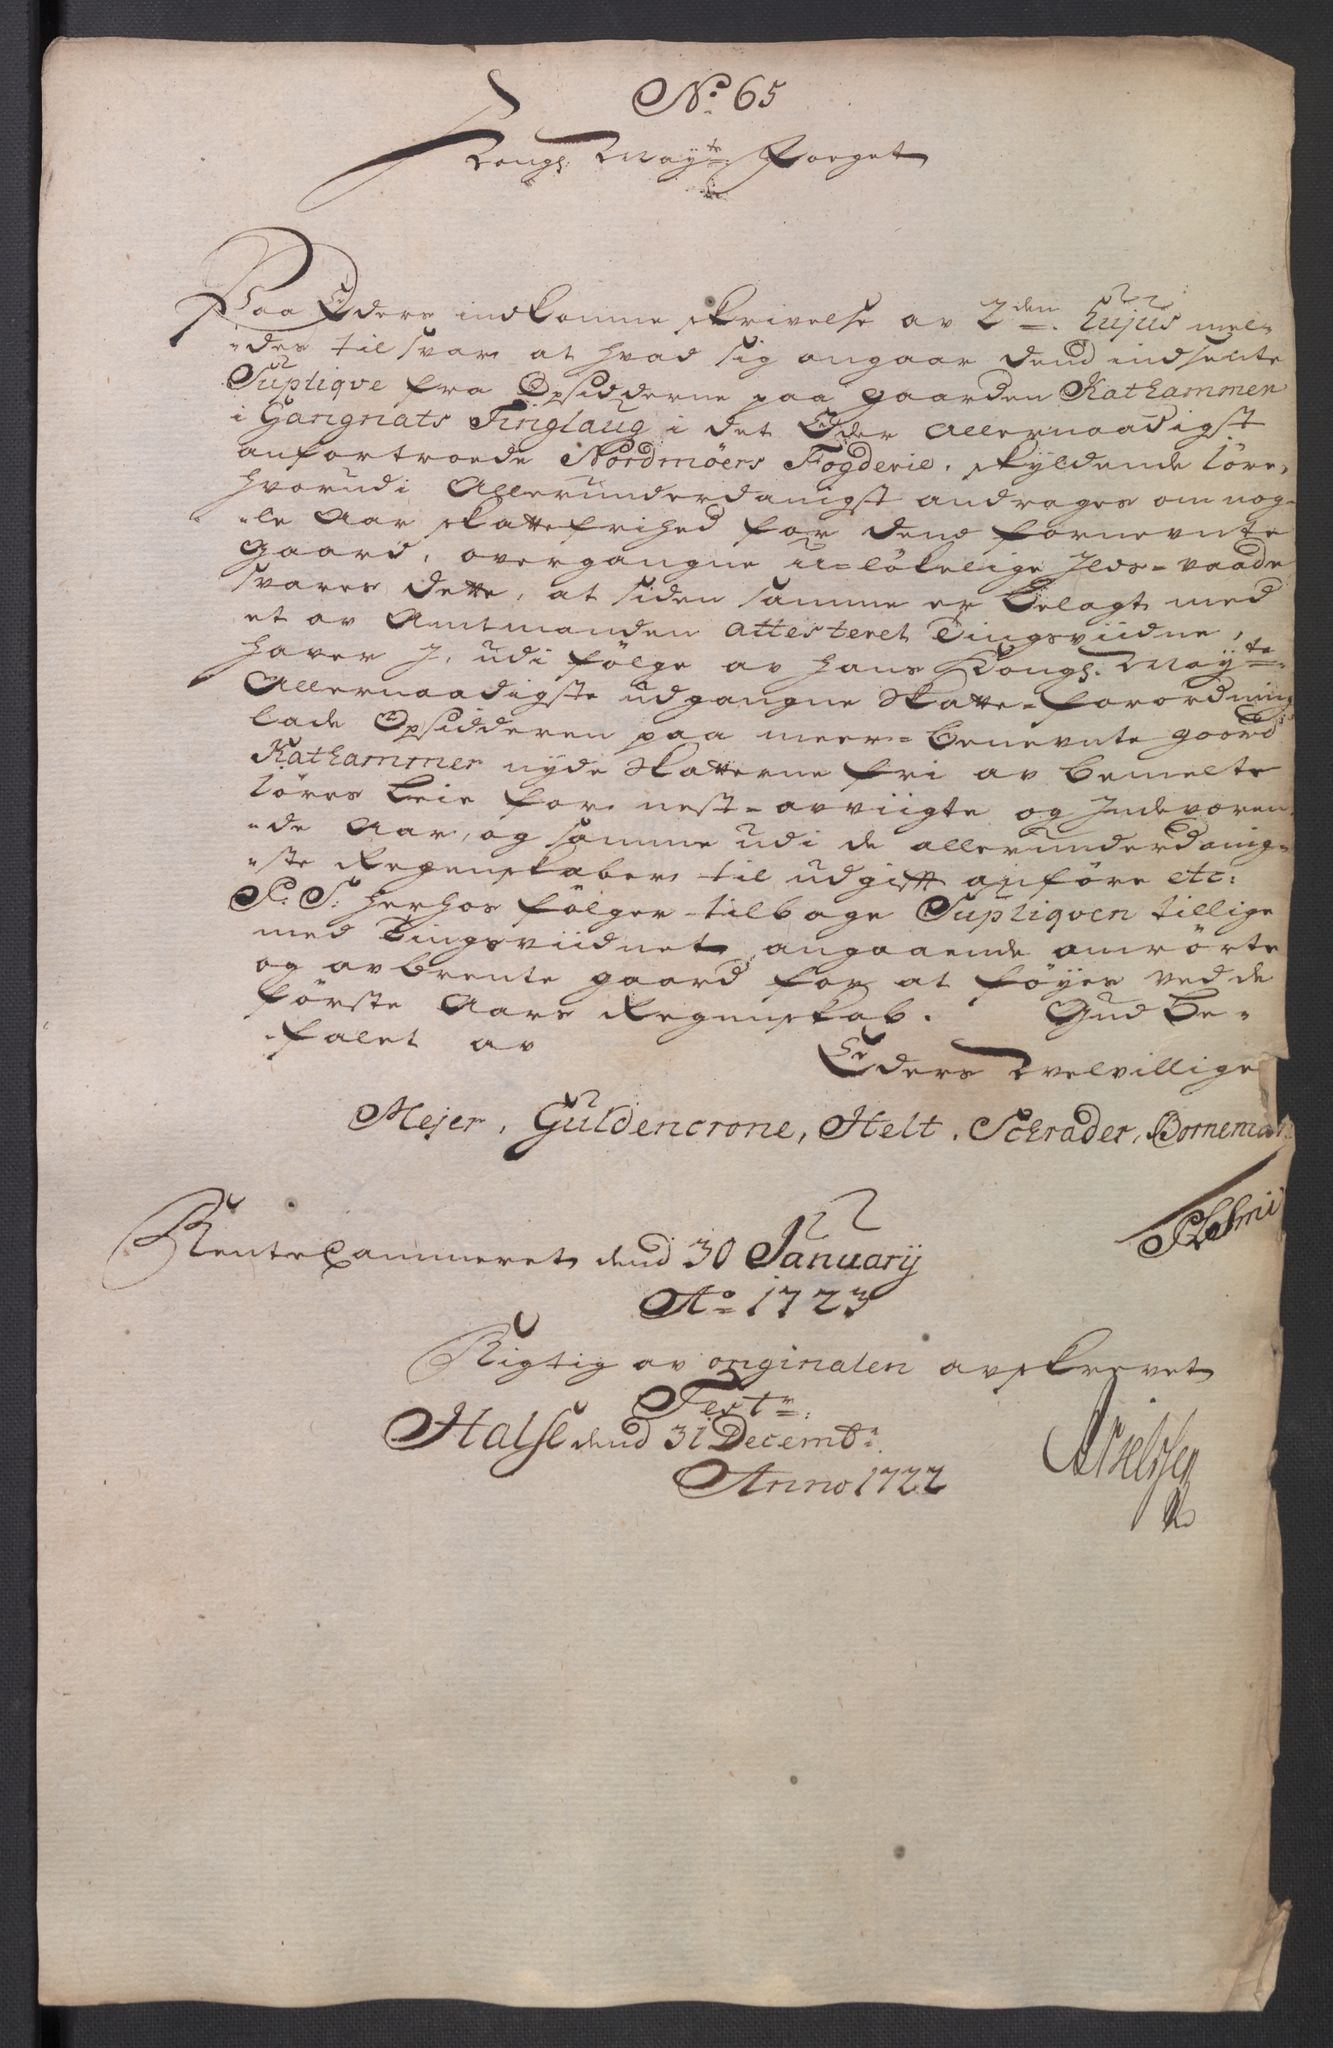 No. 65
Kongl: Mayts: Foeget
Paa Eders indkomne skrivelse av 2den. hujus mel-
-des til svar at hvad sig angaar dend indsente
Suplique fra Opsidderne paa gaarden Kathammer
i Gangnats Tinglaug i det Eder Allernaadigst
anfortroede Nordmöers Fogderie, skyldende 1 öre,
hvorudi Allerunderdanigst andrages om nog-
-le Aar skattefrihed for dend fornevnte
gaard, overgangne u-lökelige Ilds-vaade
svares dette, at siden samme er belagt med
et av Amtmanden attesteret Tingsviidne,
haver I, udi fölge av hans Kongl. Mayts:
Allernaadigste udgangne Skatte-forordning
lade Opsidderen paa meer-benevnte gaard
Kathammer nyde Skatterne fri av bemelte
1 öres leie for nest-avvigte og Indeværen-
-de Aar, og samme udi de allerunderdanig-
-ste Regenskaber til udgift anföre etc:
P: S: herhos fölger tilbage Supliqven tillige
med Tingsviidnet angaaende anrörte
og avbrente gaard for at föyes ved de
förste Aars Regenskab. Gud be-
-falet av
Eders Velvillige
Mejer, Güldencrone, Helt, Schrader, Borneman
Rentecammeret dend 30 January
Ao 1723
Rigtig av originalen avskrevet
Test:
Halse dend 31 Decembr:
Anno 1722